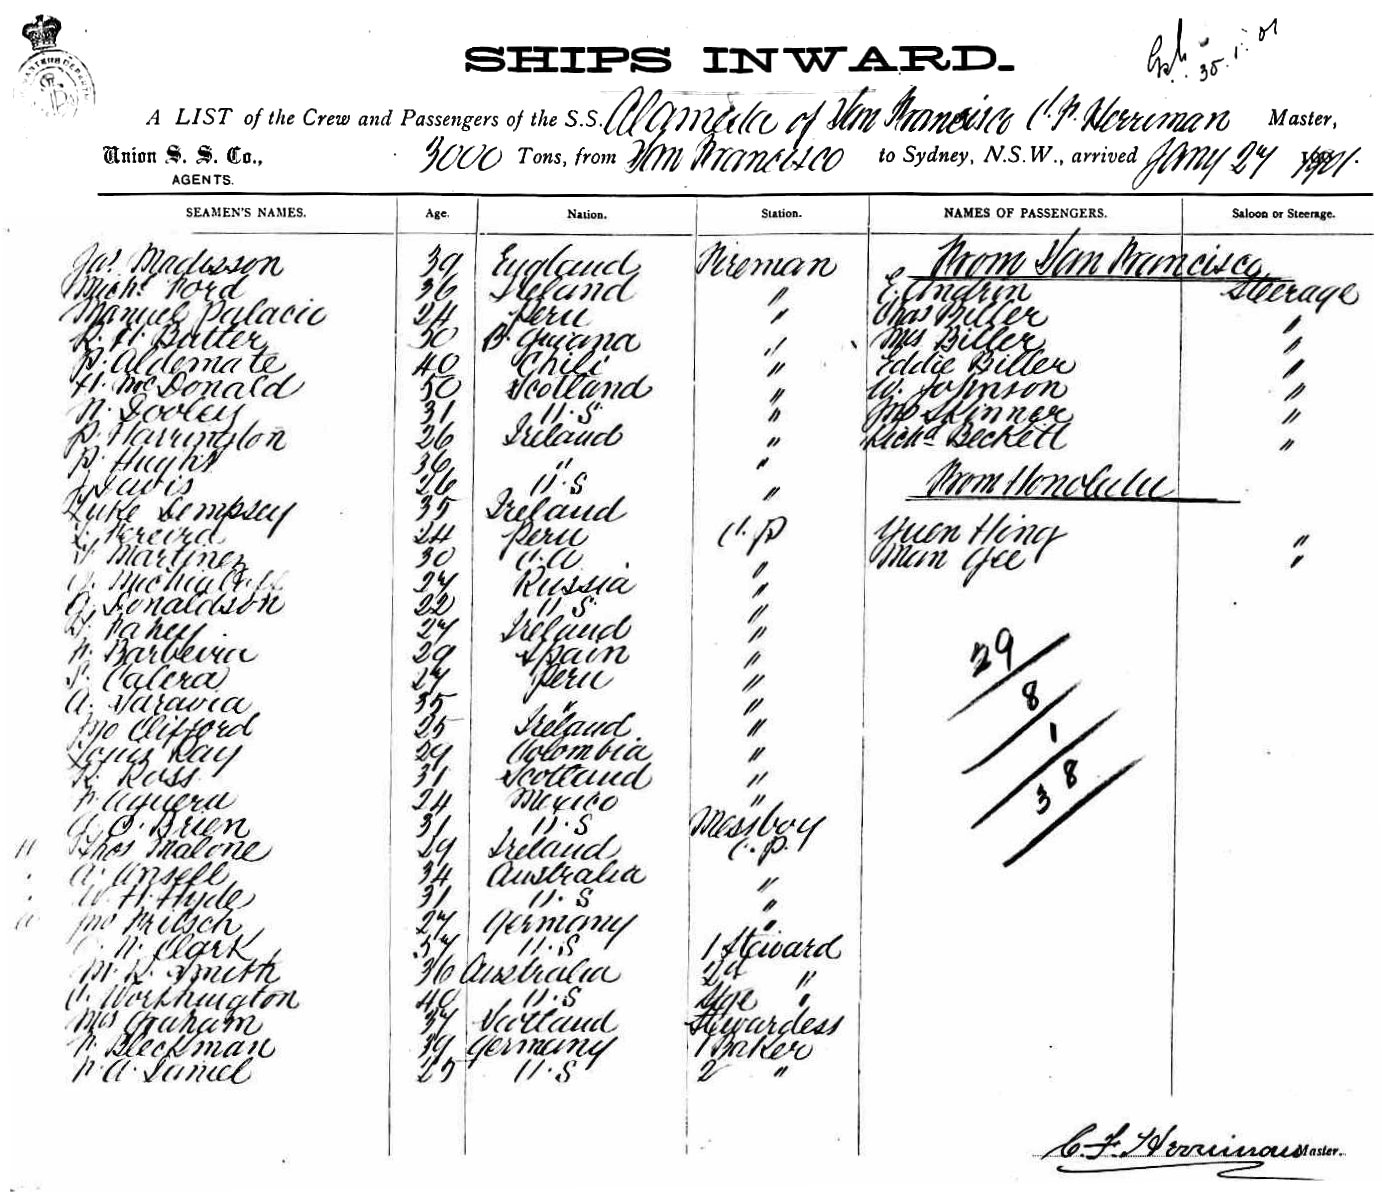 SHIPS INWARD.
35.1.01
A LIST of the Crew and Passengers of the S.S. Alameda of San Francisco C. F. Herriman Master,
Union S. S. Co., 3000 Tons, from San Francisco to Sydney, N.S.W., arrived Jany 27 1901.
AGENTS.
SEAMEN'S NAMES. Age. Nation. Station. NAMES OF PASSENGERS. Saloon or Steerage.
Jas. Madisson 39 England Fireman From San Francisco
Michl Ford 36 Ireland " E. Andrin Steerage
Manuel Palacie 24 Peru " Chas Biller "
R. H. Batter 30 B. Guiana " Mrs Biller "
P. Aldemate 40 Chili " Eddie Biller "
H. McDonald 50 Scotland " W. Johnson "
N. Dooley 31 U.S " Jno Skinner "
P. Harrington 26 Ireland " Richd Beckett "
P. Hught 36 " "
J. Davis 26 U.S " From Honolulu
Luke Dempsey 35 Ireland
Pereira 24 Peru C.P Yuen Hing "
Martinez 30 C.A " Mun Gee "
27 Russia "
Donaldson 22 U.S. "
Fahey 27 Ireland "
F. Barbeira 29 Spain "
S. Calera 27 Peru "
A. Saravia 35 " "
Jno Clifford 25 Ireland "
Louis Ray 29 Colombia "
R. Ross 31 Scotland "
F. Aguera 24 Mexico "
J. O'Brien 31 U.S Messboy
Thos Malone 29 Ireland C.P.
A. Ansell 34 Australia "
W. H. Hyde 31 U.S "
Jno Fritsch 27 Germany "
F. Clark 37 U.S 1 Steward
M. R. Smith 36 Australia 2d "
C. Worthington 40 U.S Stge "
Mrs Graham 37 Scotland Stewardess
F. Bleckman 39 Germany 1 Baker
F. A. Daniel 25 U.S 2 "
29
8
1
38
C. F. Herriman Master.